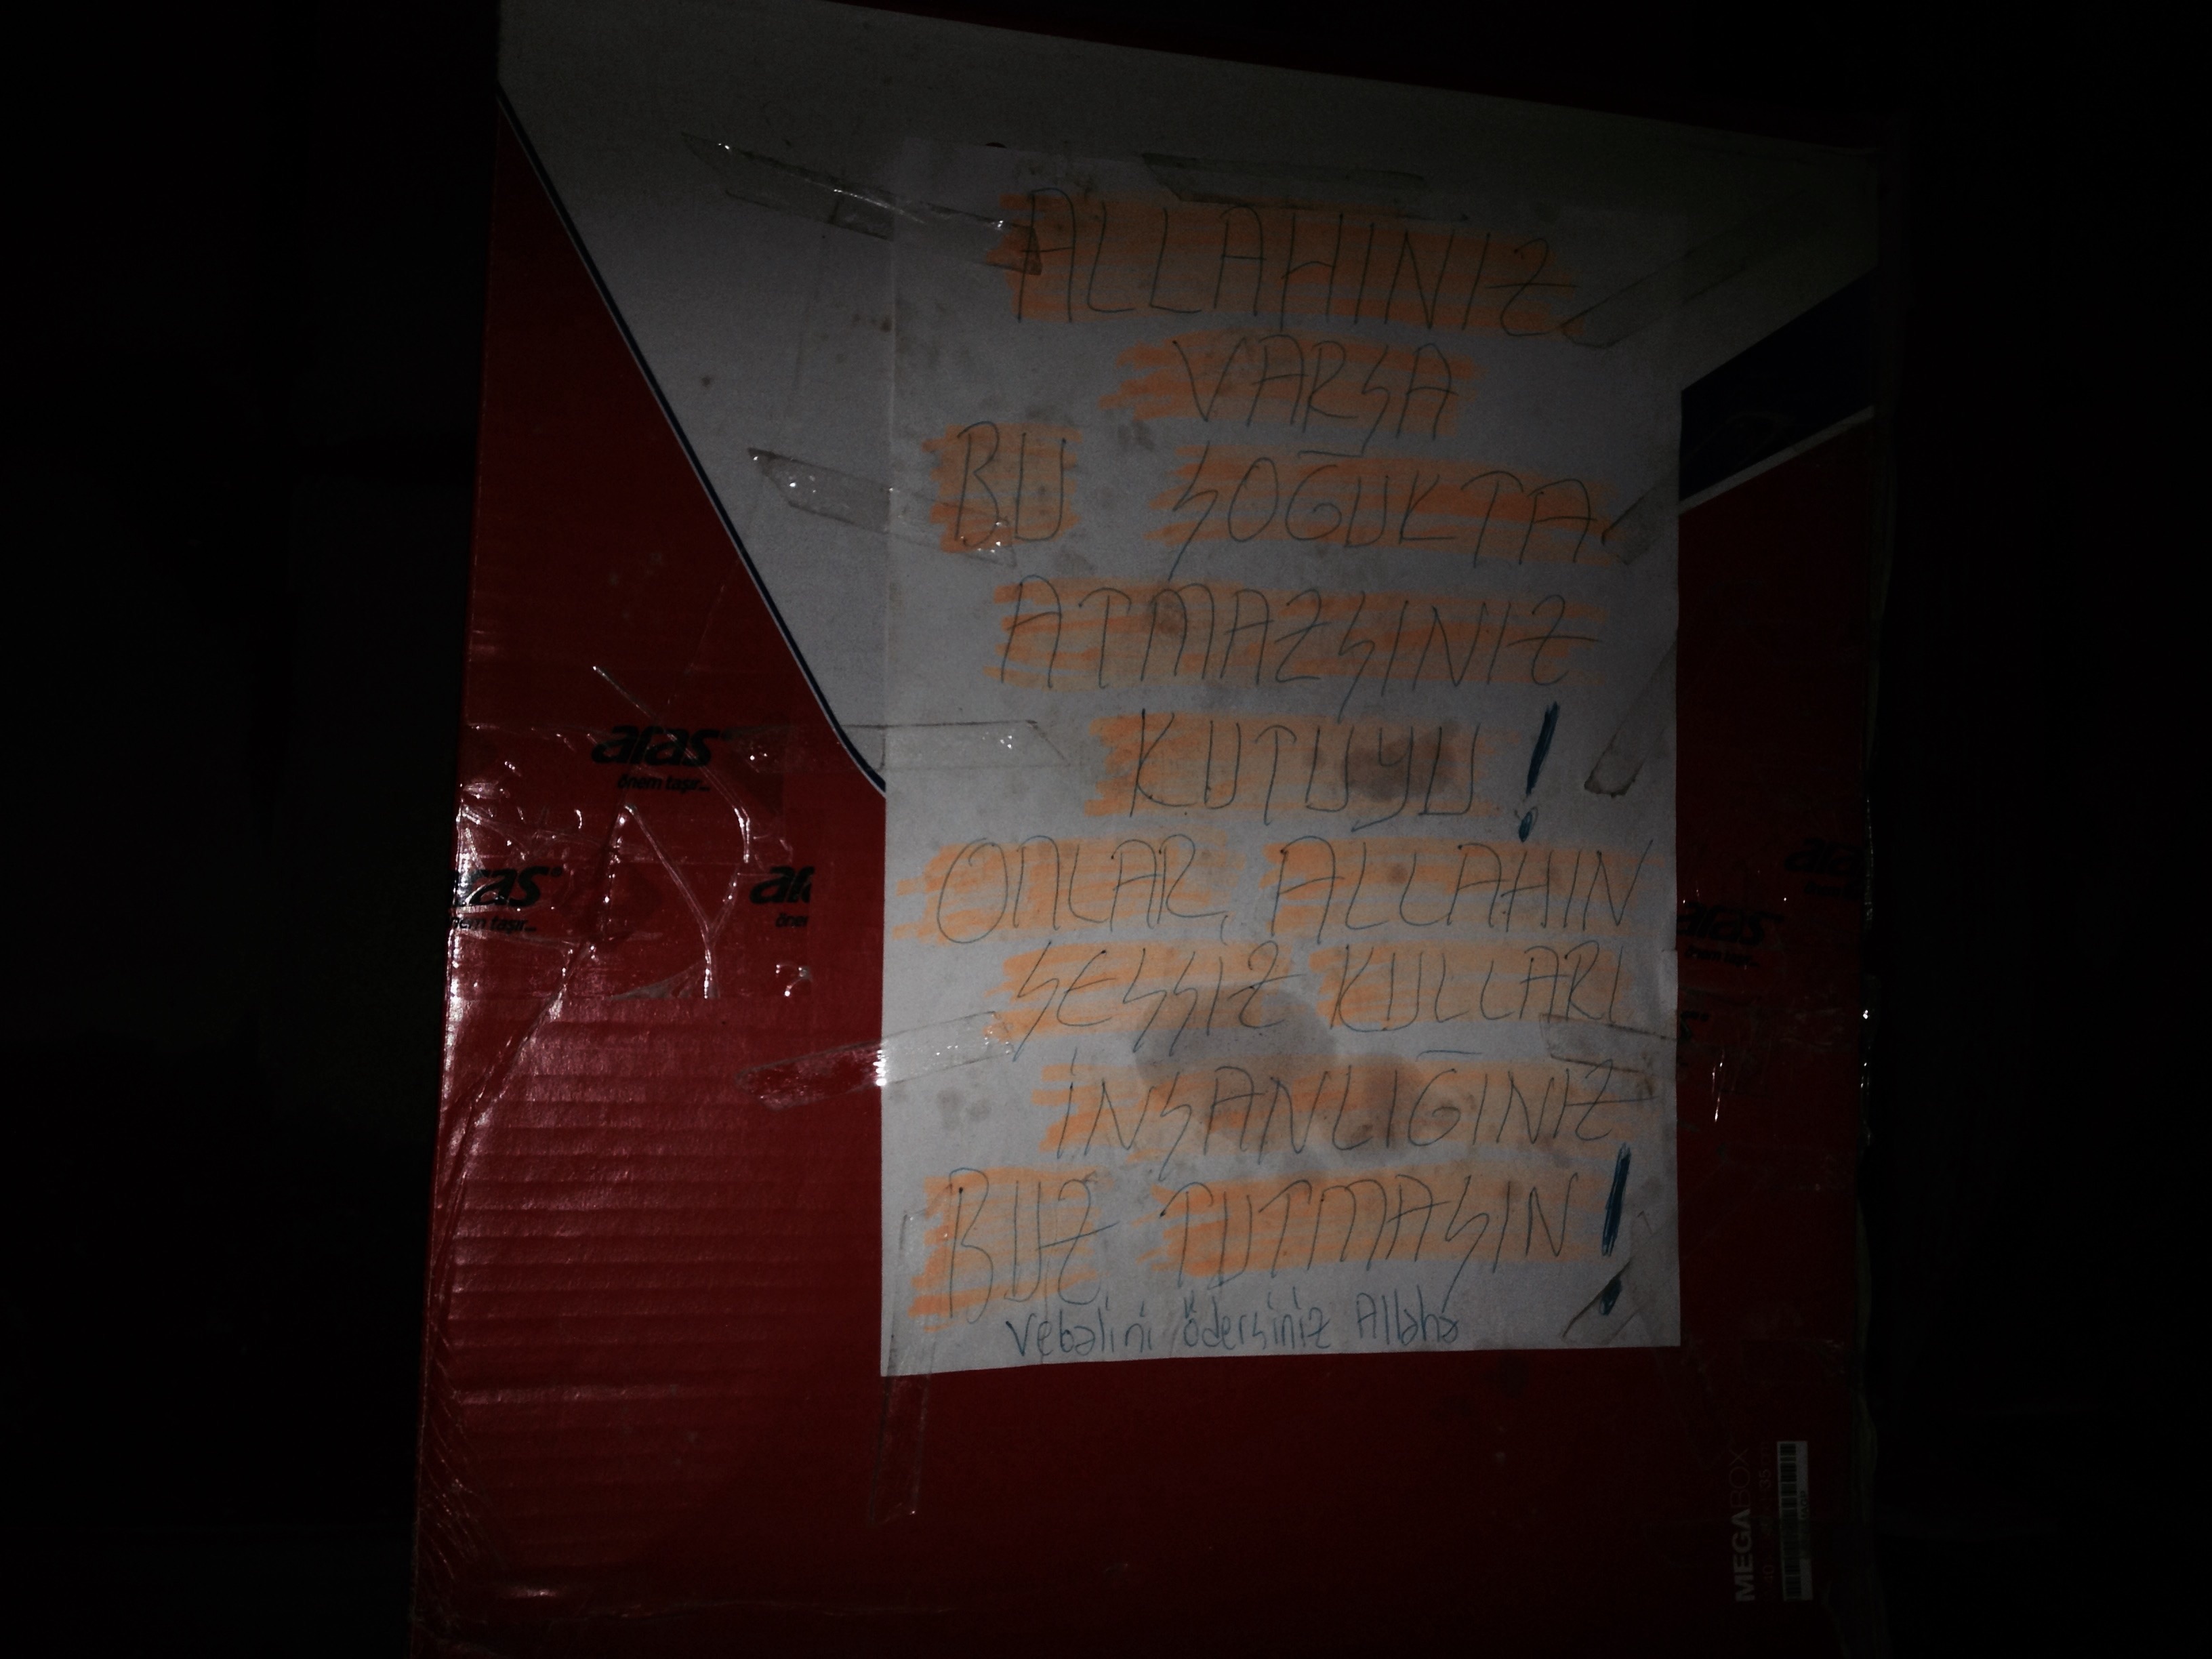 ALLAHINIZ
VARSA
BU SOĞUKTA
ATMAZSINIZ
KUTUYU!
ONLAR, ALLAHIN
SESSİZ KULLARI
İNSANLIĞINIZ
BUZ TUTMASIN!
Vebalini ödersiniz Allaha
aras
önem taşır...
aras
önem taşır...
aras
aras
MEGABOX